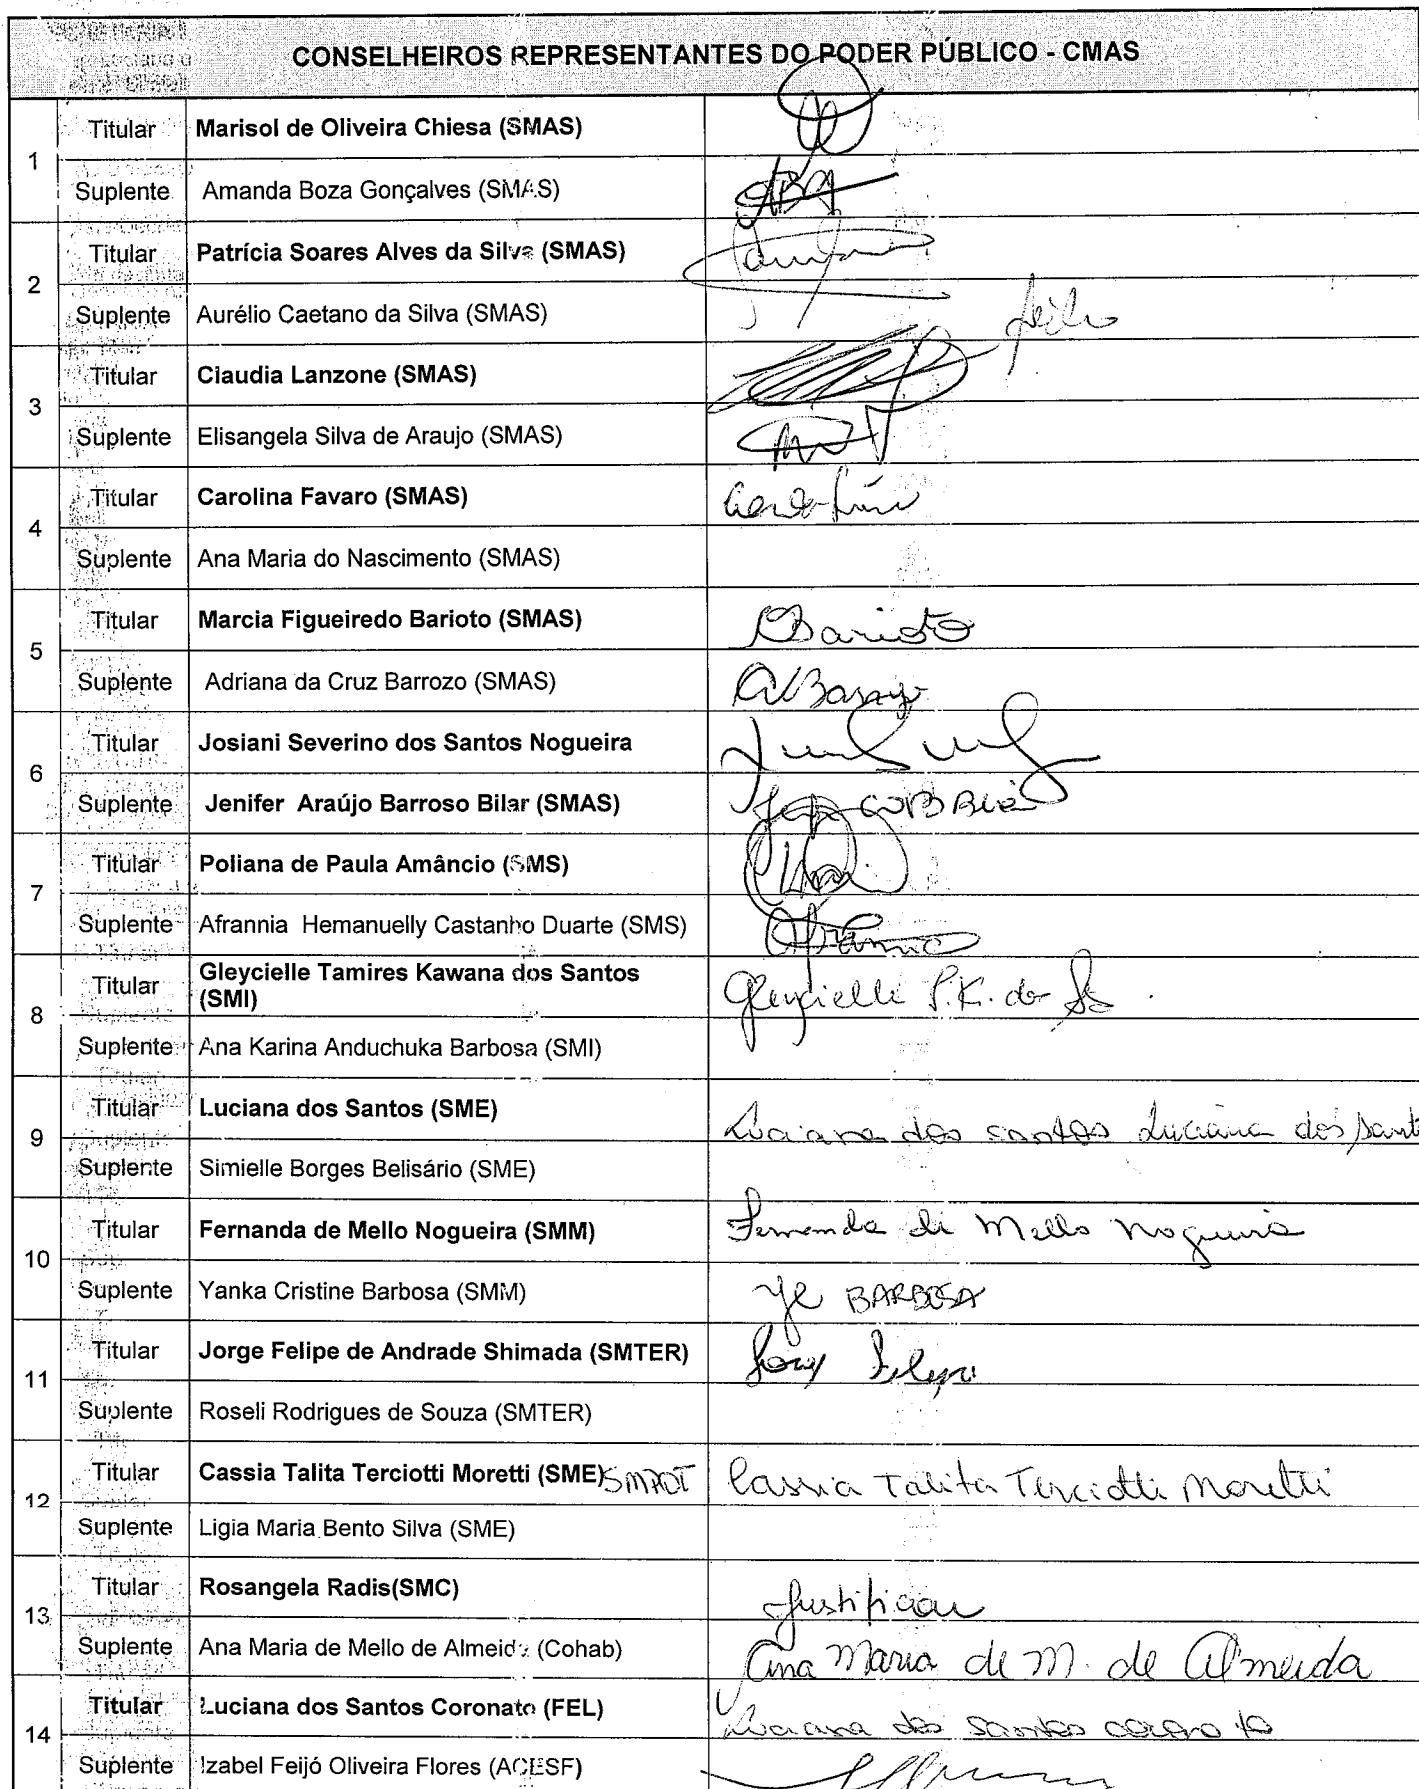 CONSELHEIROS REPRESENTANTES DO PODER PÚBLICO - CMAS
1
Titular Marisol de Oliveira Chiesa (SMAS)
Suplente Amanda Boza Gonçalves (SMAS)
2
Titular Patrícia Soares Alves da Silva (SMAS)
Suplente Aurélio Caetano da Silva (SMAS)
3
Titular Claudia Lanzone (SMAS)
Suplente Elisangela Silva de Araujo (SMAS)
4
Titular Carolina Favaro (SMAS)
Suplente Ana Maria do Nascimento (SMAS)
5
Titular Marcia Figueiredo Barioto (SMAS) Barioto
Suplente Adriana da Cruz Barrozo (SMAS)
6
Titular Josiani Severino dos Santos Nogueira
Suplente Jenifer Araújo Barroso Bilar (SMAS)
7
Titular Poliana de Paula Amâncio (SMS)
Suplente Afrannia Hemanuelly Castanho Duarte (SMS) Afrannia
8
Titular Gleycielle Tamires Kawana dos Santos
(SMI) Gleycielle T.K. dos
Suplente Ana Karina Anduchuka Barbosa (SMI)
9
Titular Luciana dos Santos (SME) Luciana dos santos Luciana dos Sant
Suplente Simielle Borges Belisário (SME)
10
Titular Fernanda de Mello Nogueira (SMM) Fernanda de Mello Nogueira
Suplente Yanka Cristine Barbosa (SMM) YC BARBOSA
11
Titular Jorge Felipe de Andrade Shimada (SMTER) Jorge Felipe
Suplente Roseli Rodrigues de Souza (SMTER)
12
Titular Cassia Talita Terciotti Moretti (SME) Cassia Talita Terciotti Moretti
Suplente Ligia Maria Bento Silva (SME)
13
Titular Rosangela Radis(SMC) Justificou
Suplente Ana Maria de Mello de Almeida (Cohab) Ana Maria de M. de Almeida
14
Titular Luciana dos Santos Coronato (FEL) Luciana dos Santos coronato
Suplente Izabel Feijó Oliveira Flores (ACESF)